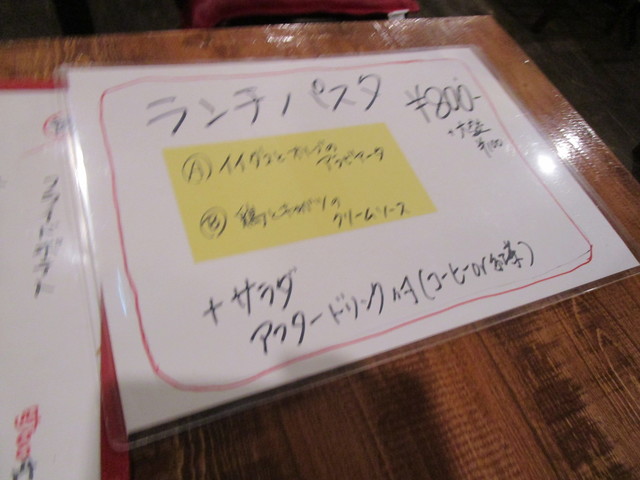 ランチパスタ ¥800-
+大盛 ¥100
Ⓐ イイダコとオリーブの
アラビアータ
Ⓑ 鶏とキャベツの
クリームソース
+ サラダ
アフタードリンク付(コーヒーor紅茶)